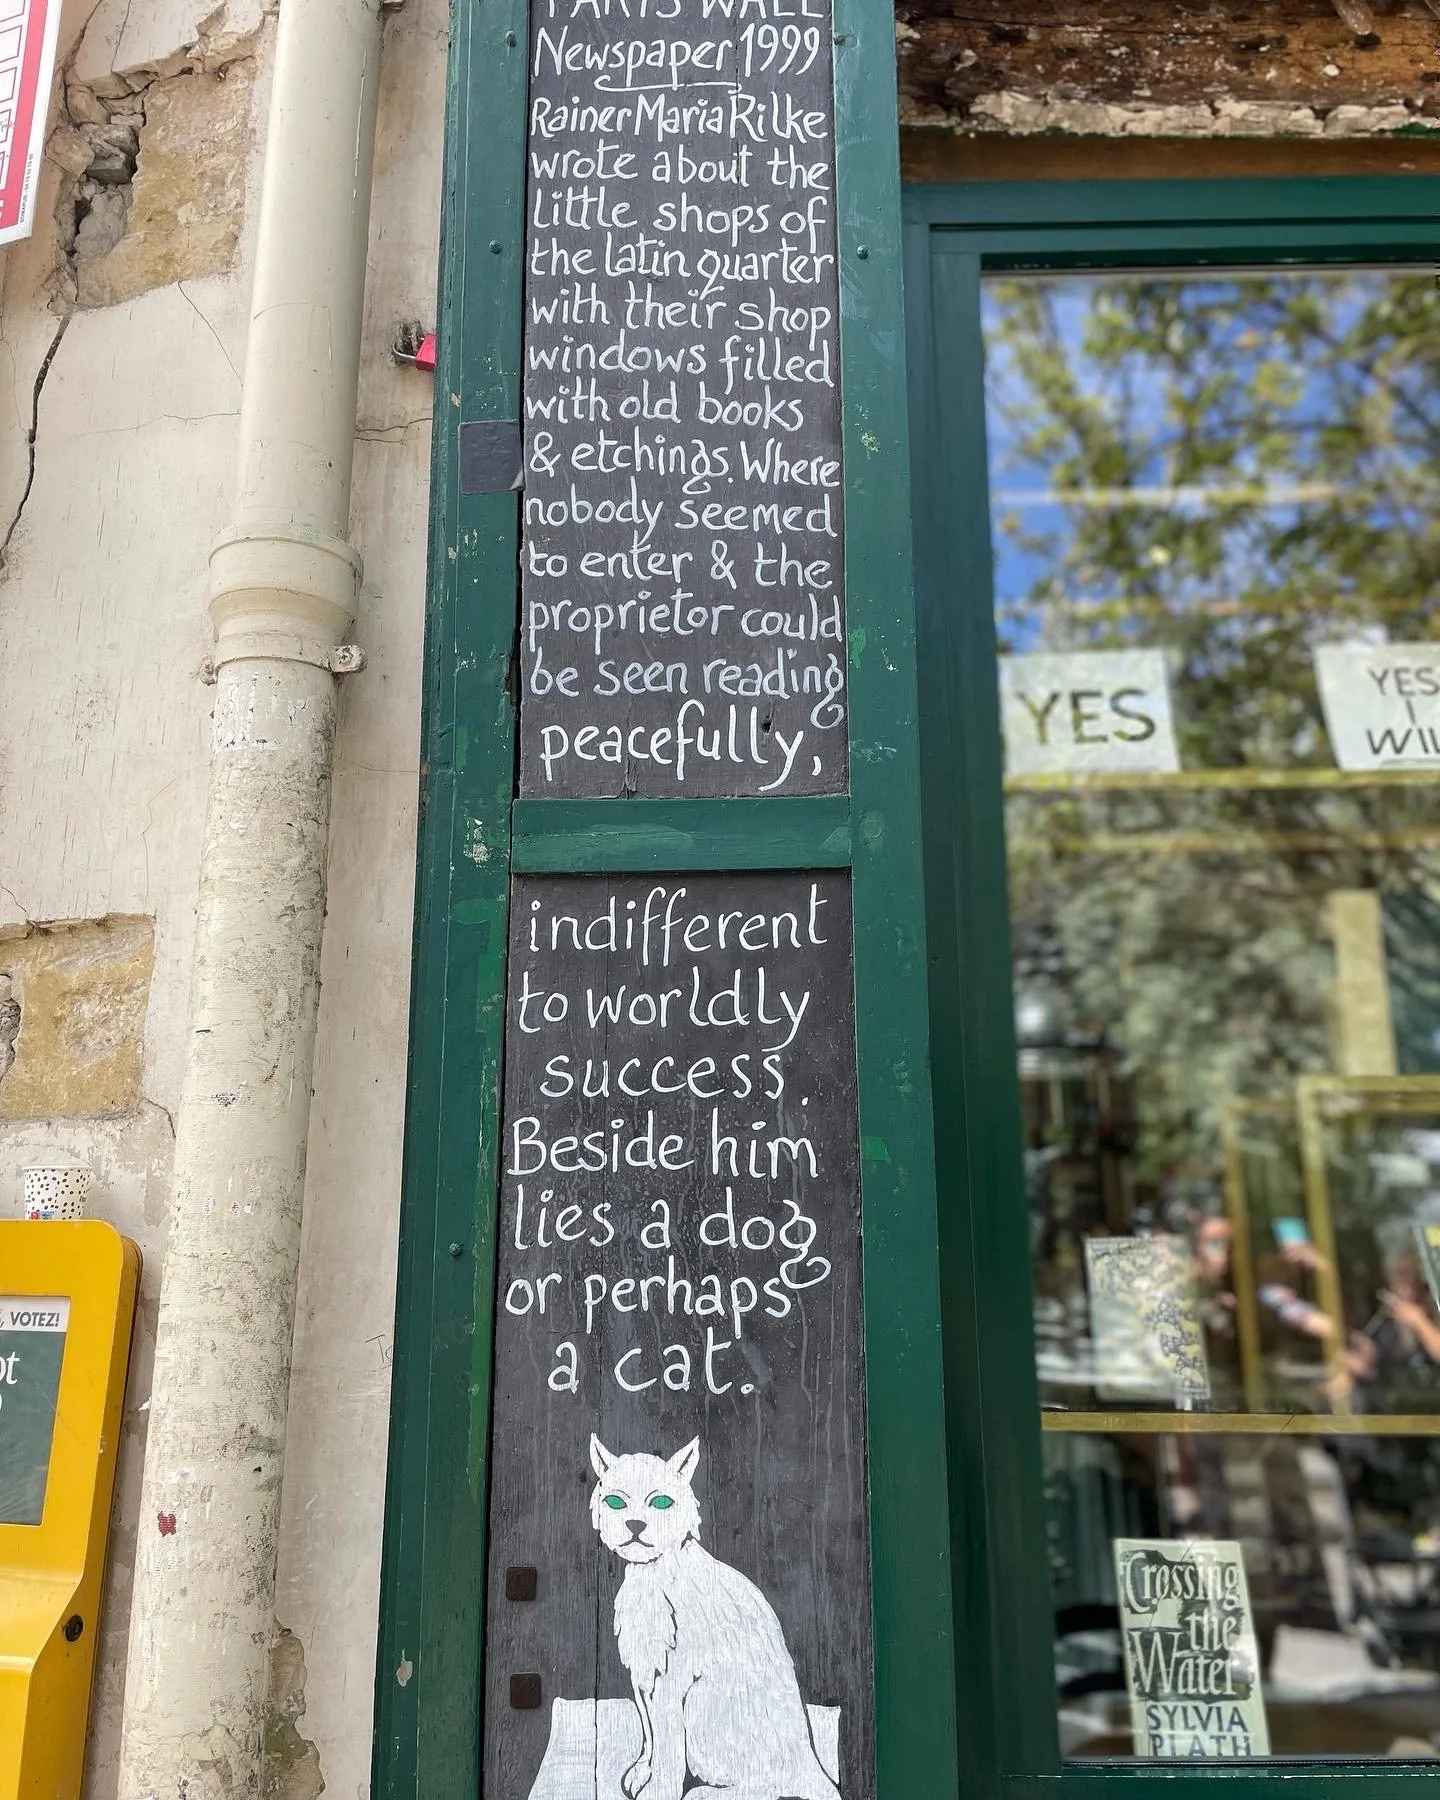 PARIS WALL
Newspaper 1999
Rainer Maria Rilke
wrote about the
little shops of
the latin quarter
with their shop
windows filled
with old books
& etchings. Where
nobody seemed
to enter & the
proprietor could
be seen reading
peacefully,
indifferent
to worldly
success.
Beside him
lies a dog
or perhaps
a cat.
YES
YES
I
WIL
, VOTEZ!
ot
Crossing
the
Water
SYLVIA
PLATH